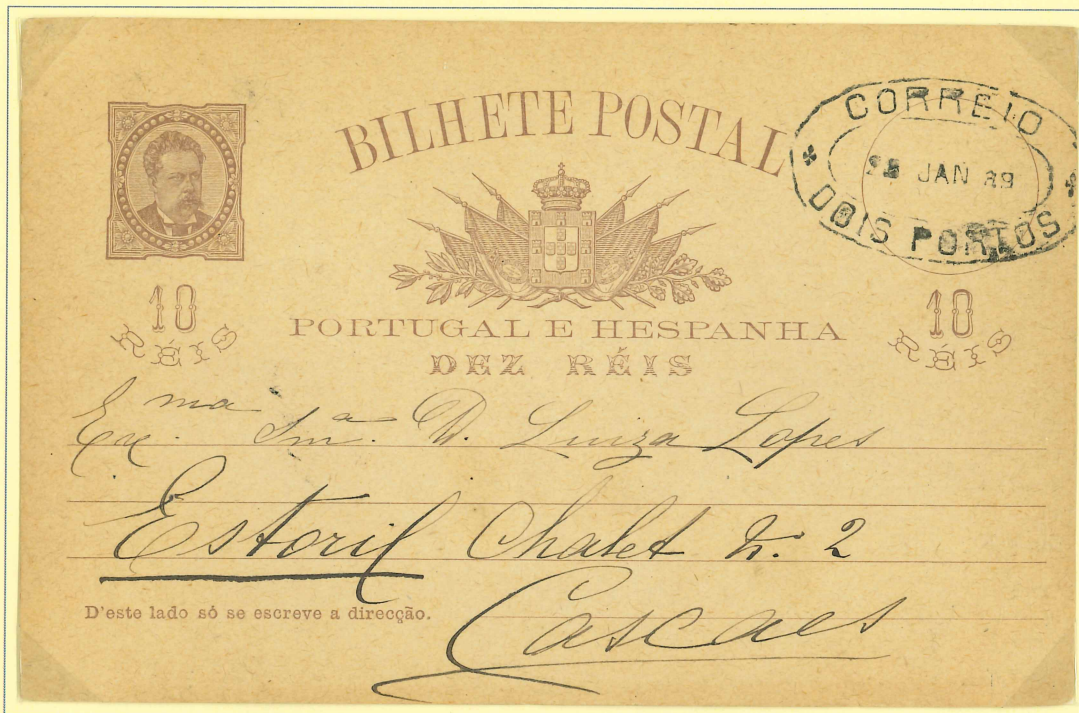 BILHETE POSTAL
CORREIO
JAN 89
DOIS PORTOS
10
RÉIS
PORTUGAL E HESPANHA
DEZ RÉIS
10
RÉIS
Exma Snra. D. Luiza Lopes
Estoril Chalet N. 2
D'este lado só se escreve a direcção.
Cascaes